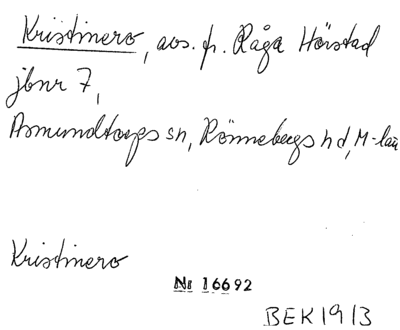 Kristinero, avs. fr. Råga Hörstad
jbnr 7,
Asmundtorps sn, Rönnebergs hd, M-län
Kristinero
Nr 16692
BEK 1913